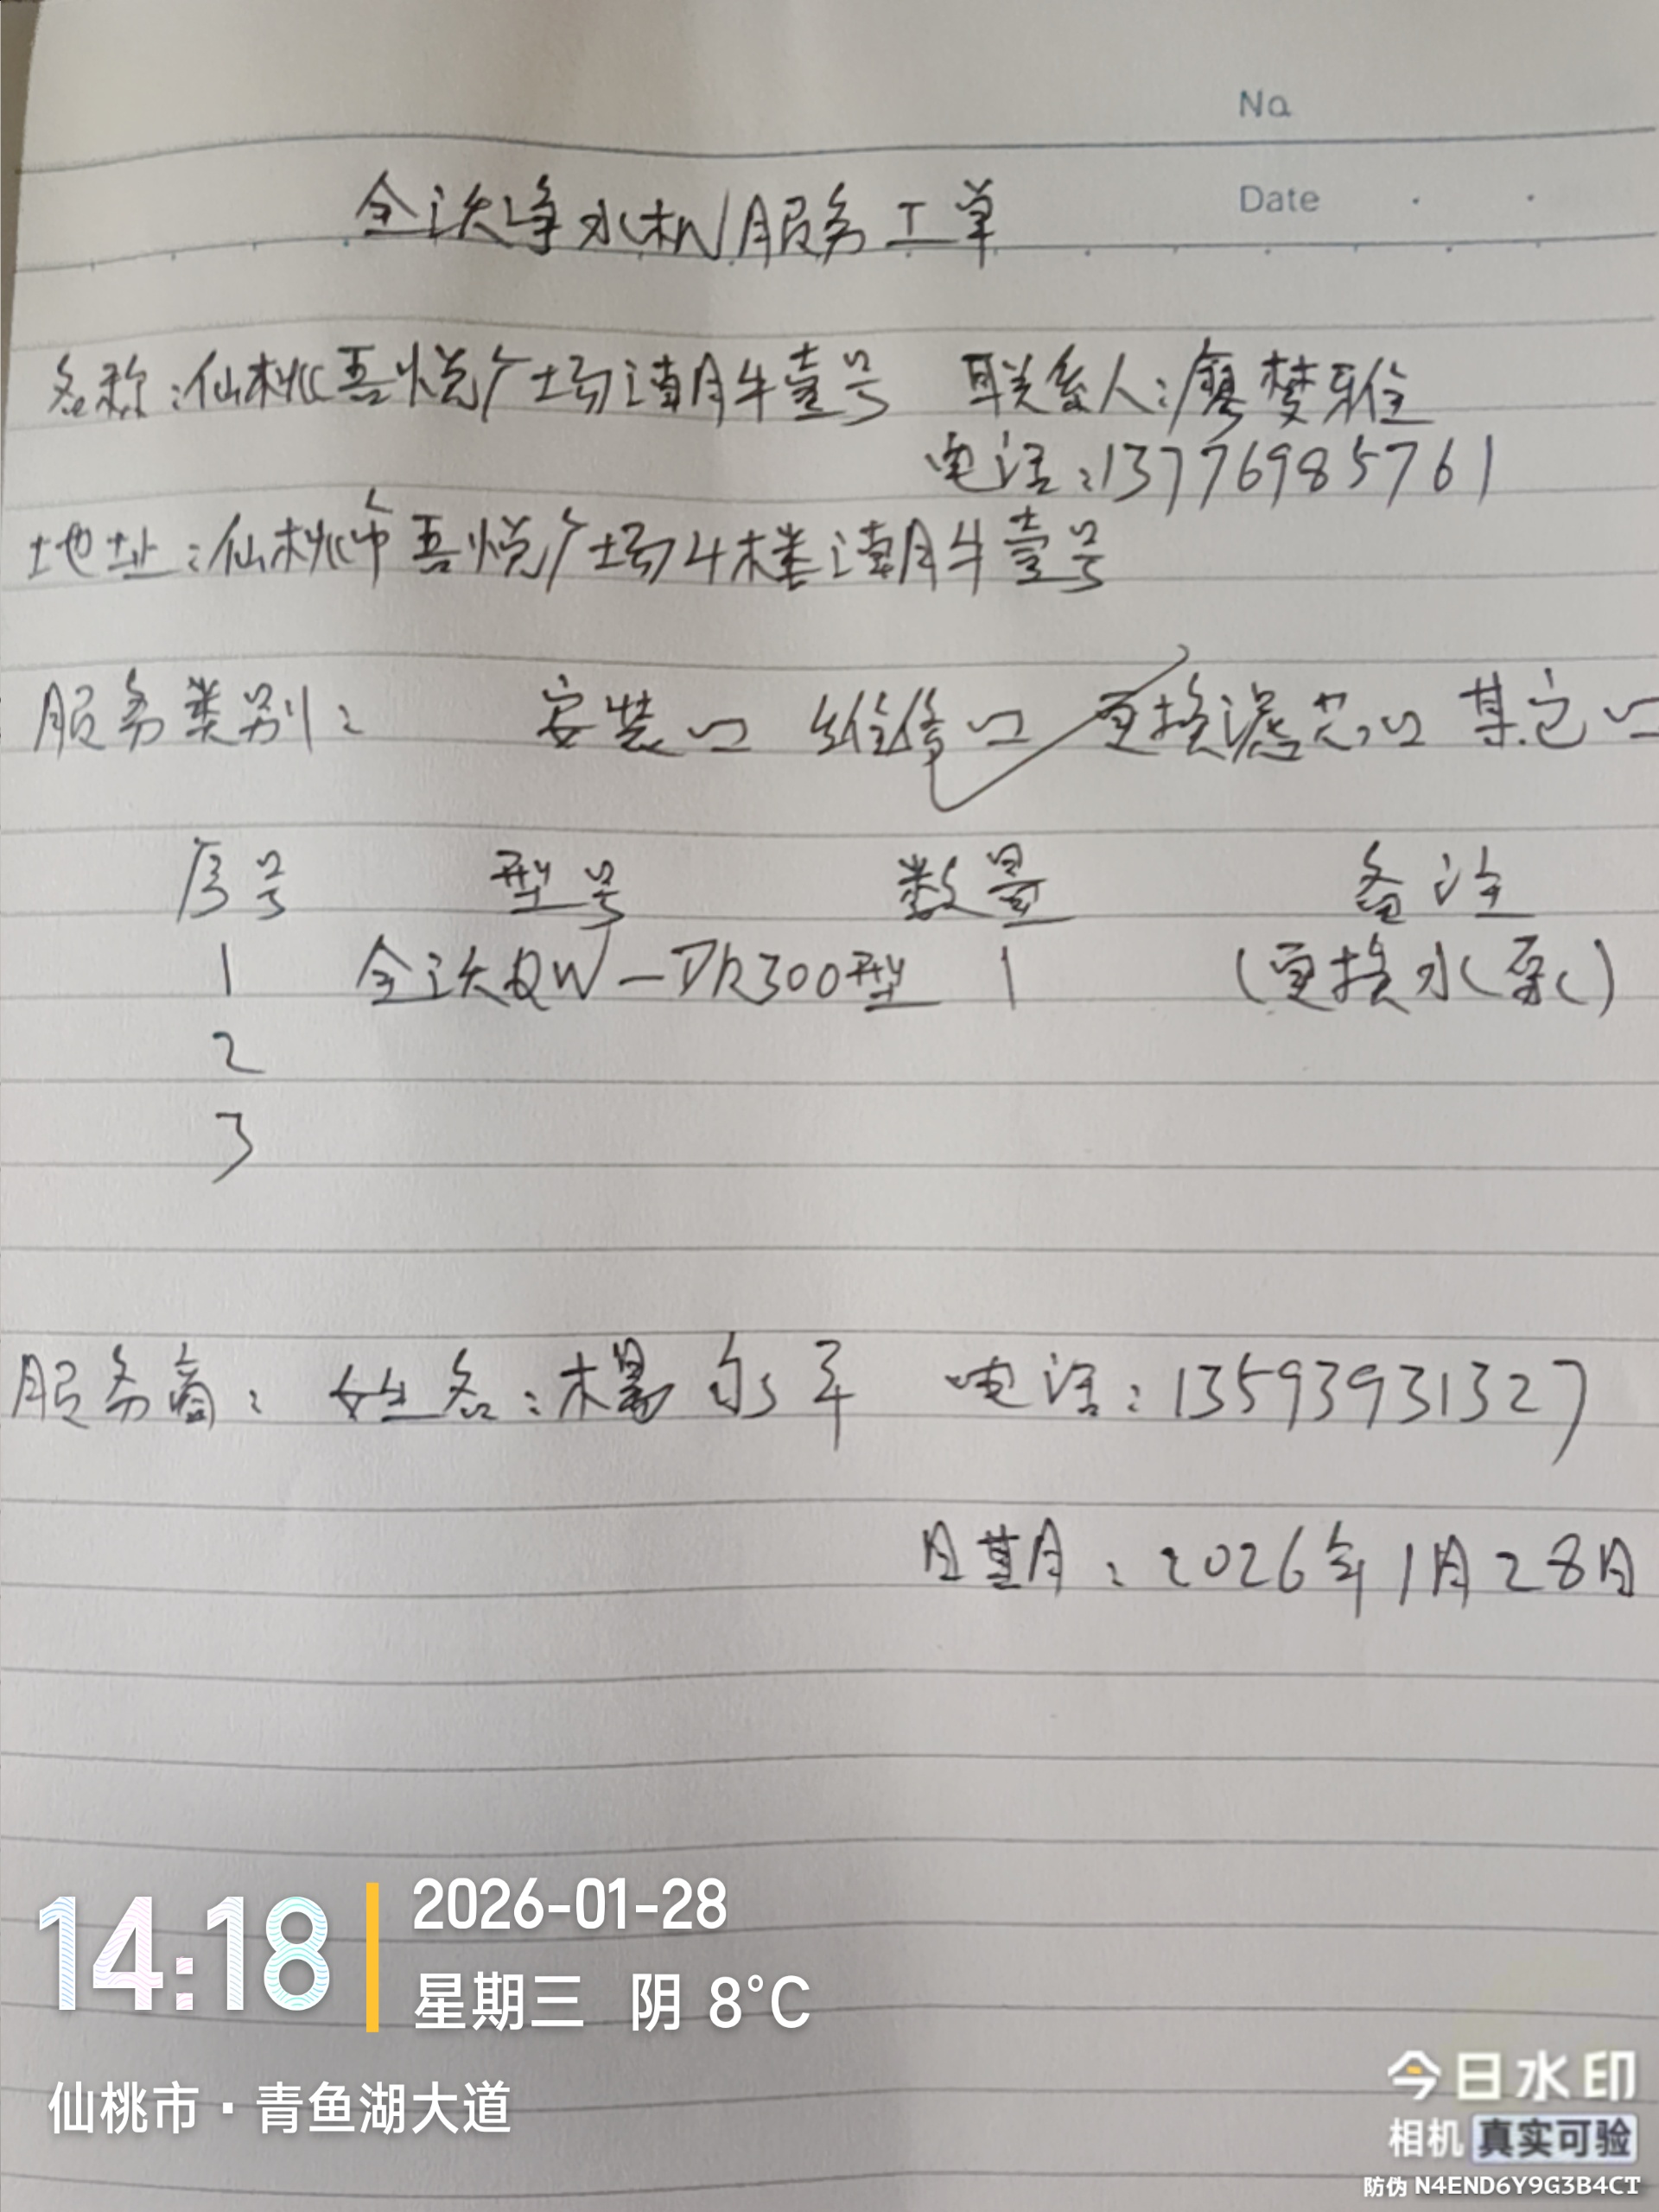 No
Date
全沃净水机服务工单
名称:仙桃吾悦广场潮牛壹号 联系人:廖梦雅
电话:13776985761
地址:仙桃市吾悦广场4楼潮牛壹号
服务类别: 安装□ 维修□✓ 更换滤芯□ 其它□
序号 型号 数量 备注
1 全沃QW-DR300型 1 (更换水泵)
2
3
服务商: 姓名:杨永军 电话:13593931327
日期:2026年1月28日
14:18
2026-01-28
星期三 阴 8°C
仙桃市·青鱼湖大道
今日水印
相机 真实可验
防伪 N4END6Y9G3B4CT